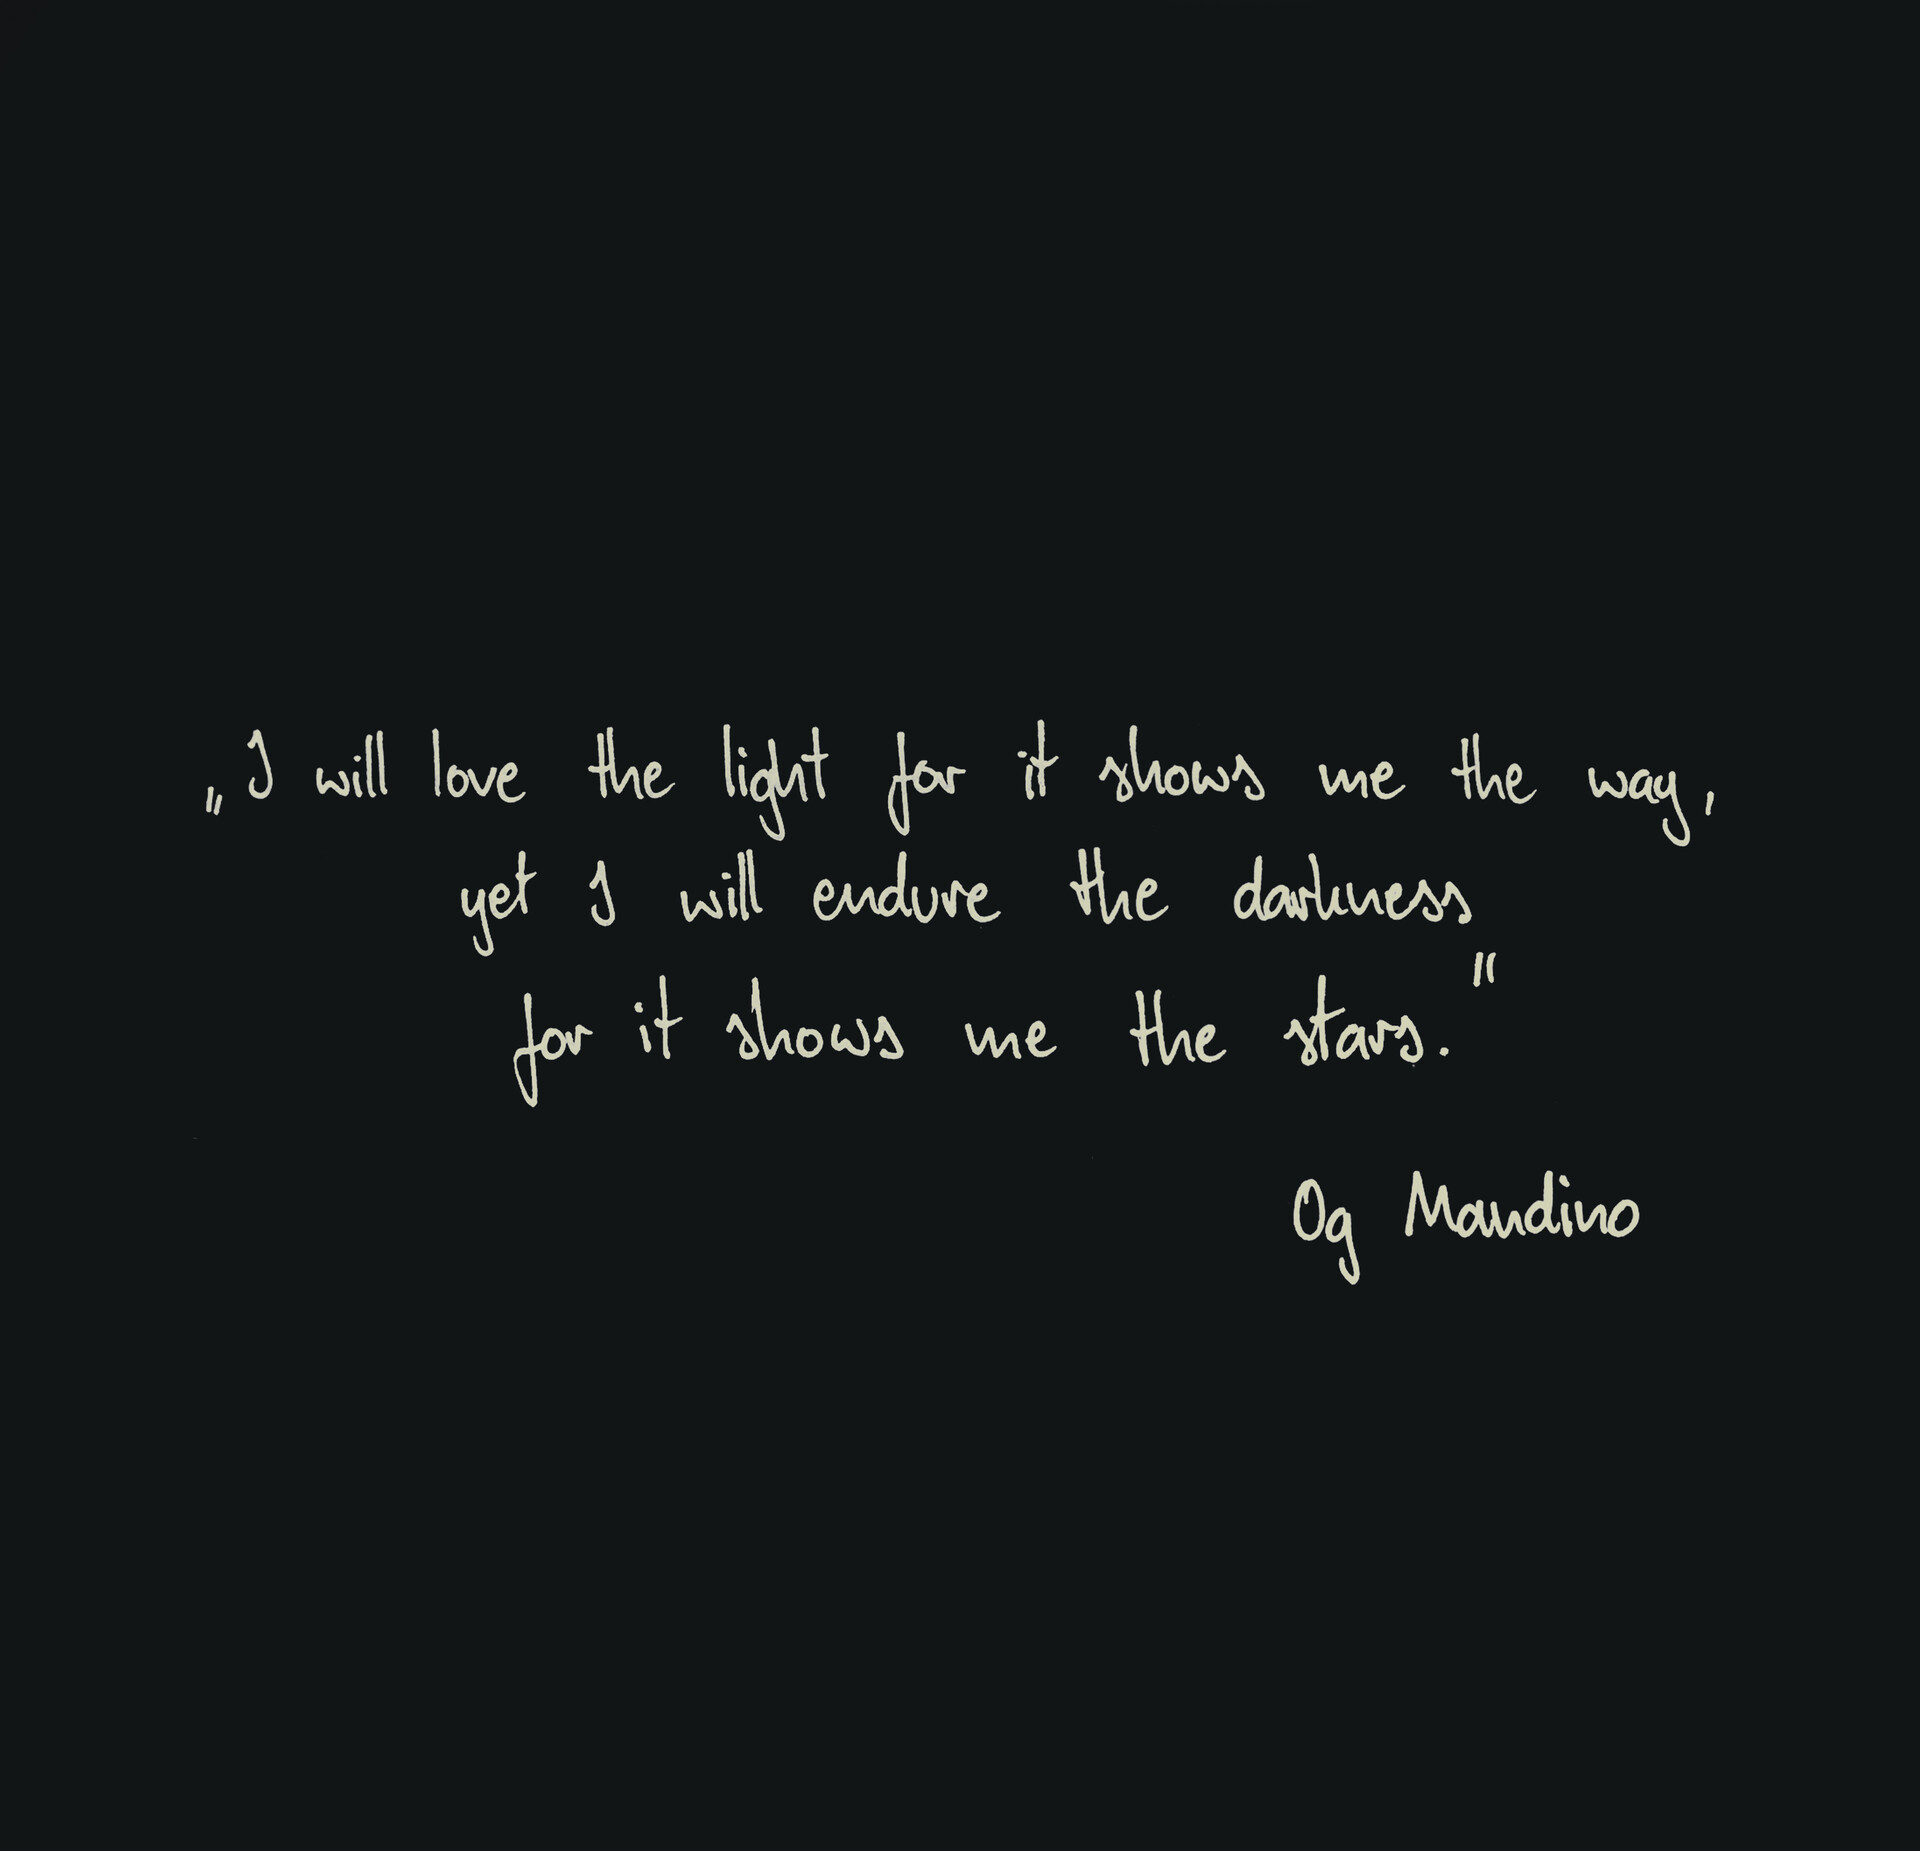 „I will love the light for it shows me the way,
yet I will endure the darkness
for it shows me the stars."
Og Mandino